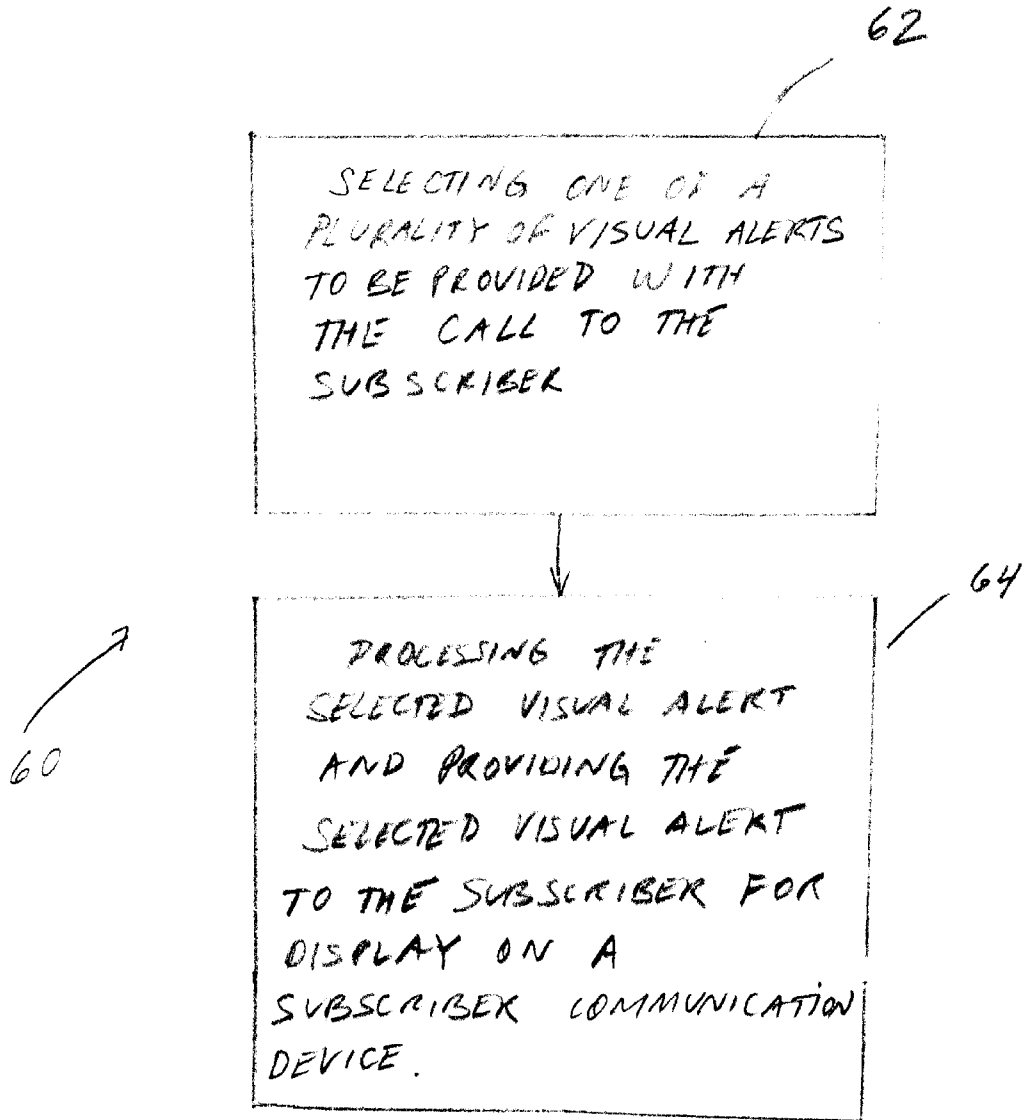 62
SELECTING ONE OF A
PLURALITY OF VISUAL ALERTS
TO BE PROVIDED WITH
THE CALL TO THE
SUBSCRIBER
64
PROCESSING THE
SELECTED VISUAL ALERT
AND PROVIDING THE
SELECTED VISUAL ALERT
TO THE SUBSCRIBER FOR
DISPLAY ON A
SUBSCRIBER COMMUNICATION
DEVICE.
60